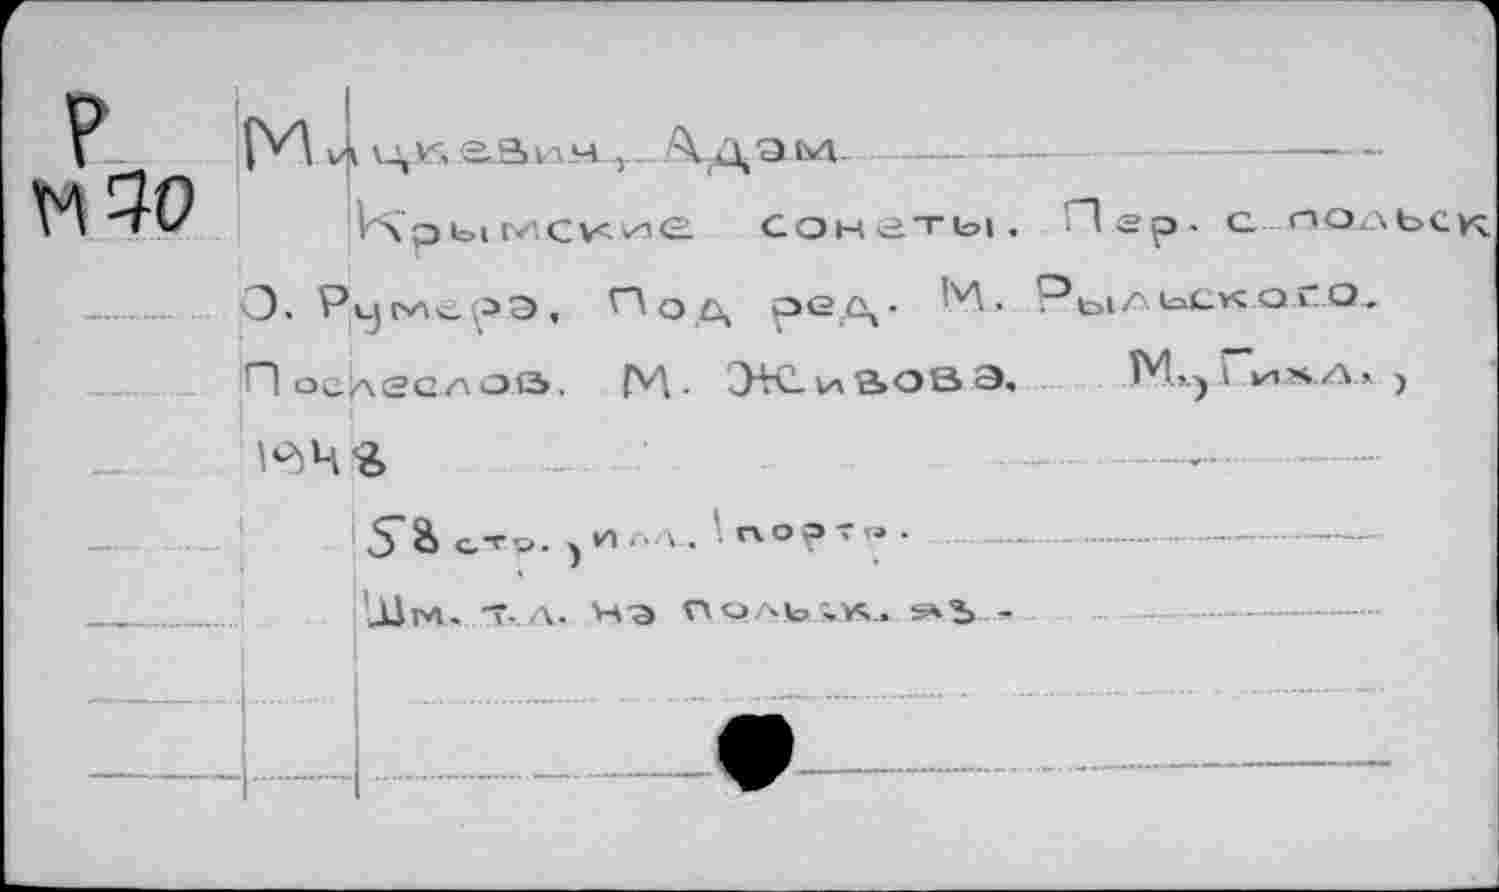 Р
М70
Мицкевич, Адам
Крымские сонеты. Пер. с польск
О. Румера, Под ред. М. Рыльского.
Послеслов. М. Живова, М., Гихл.,
1948
58 стр., илл. 1 портр.
Шм. т. л. на польск. яз -